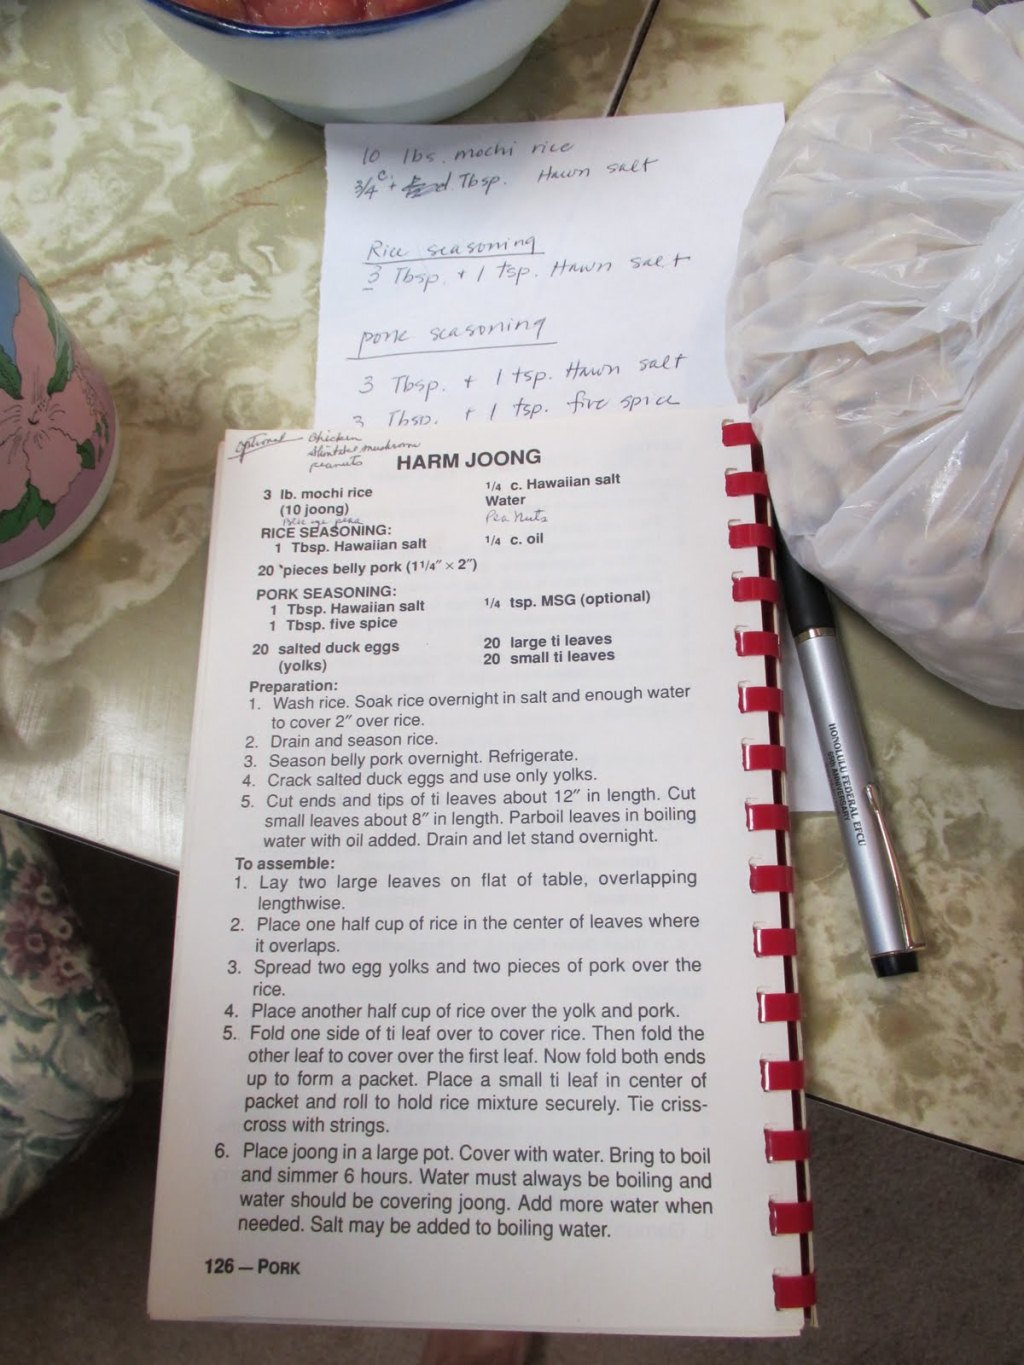 10 lbs. mochi rice
3/4 c + Tbsp. Hawn salt
Rice seasoning
3 Tbsp. + 1 tsp. Hawn salt
pork seasoning
3 Tbsp. + 1 tsp. Hawn salt
3 Tbsp. + 1 tsp. five spice
optional chicken
mushroom
peanuts
HARM JOONG
3 lb. mochi rice
(10 joong)
1/4 c. Hawaiian salt
Water
Peanuts
RICE SEASONING:
1 Tbsp. Hawaiian salt
1/4 c. oil
20 pieces belly pork (1 1/4" × 2")
PORK SEASONING:
1 Tbsp. Hawaiian salt
1 Tbsp. five spice
1/4 tsp. MSG (optional)
20 salted duck eggs
(yolks)
20 large ti leaves
20 small ti leaves
Preparation:
1. Wash rice. Soak rice overnight in salt and enough water
to cover 2" over rice.
2. Drain and season rice.
3. Season belly pork overnight. Refrigerate.
4. Crack salted duck eggs and use only yolks.
5. Cut ends and tips of ti leaves about 12" in length. Cut
small leaves about 8" in length. Parboil leaves in boiling
water with oil added. Drain and let stand overnight.
To assemble:
1. Lay two large leaves on flat of table, overlapping
lengthwise.
2. Place one half cup of rice in the center of leaves where
it overlaps.
3. Spread two egg yolks and two pieces of pork over the
rice.
4. Place another half cup of rice over the yolk and pork.
5. Fold one side of ti leaf over to cover rice. Then fold the
other leaf to cover over the first leaf. Now fold both ends
up to form a packet. Place a small ti leaf in center of
packet and roll to hold rice mixture securely. Tie criss-
cross with strings.
6. Place joong in a large pot. Cover with water. Bring to boil
and simmer 6 hours. Water must always be boiling and
water should be covering joong. Add more water when
needed. Salt may be added to boiling water.
126 — PORK
HONOLULU FEDERAL EFCU
ANNIVERSARY